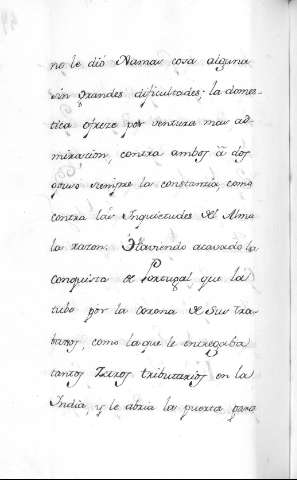 no le dió Nama cosa alguna
sin grandes dificultades; la domes-
tica ofreze por ventura mas ad-
miracion, contra ambos á dos
opuso siempre la constancia, como
contra las Inquietudes del Alma
la razon. Haviendo acavado la
conquista de Portugal que la
tubo por la corona de sus tra-
bajos, como la que le entregaba
tantos Rexos tributarios en la
India, y le abria la puerta para